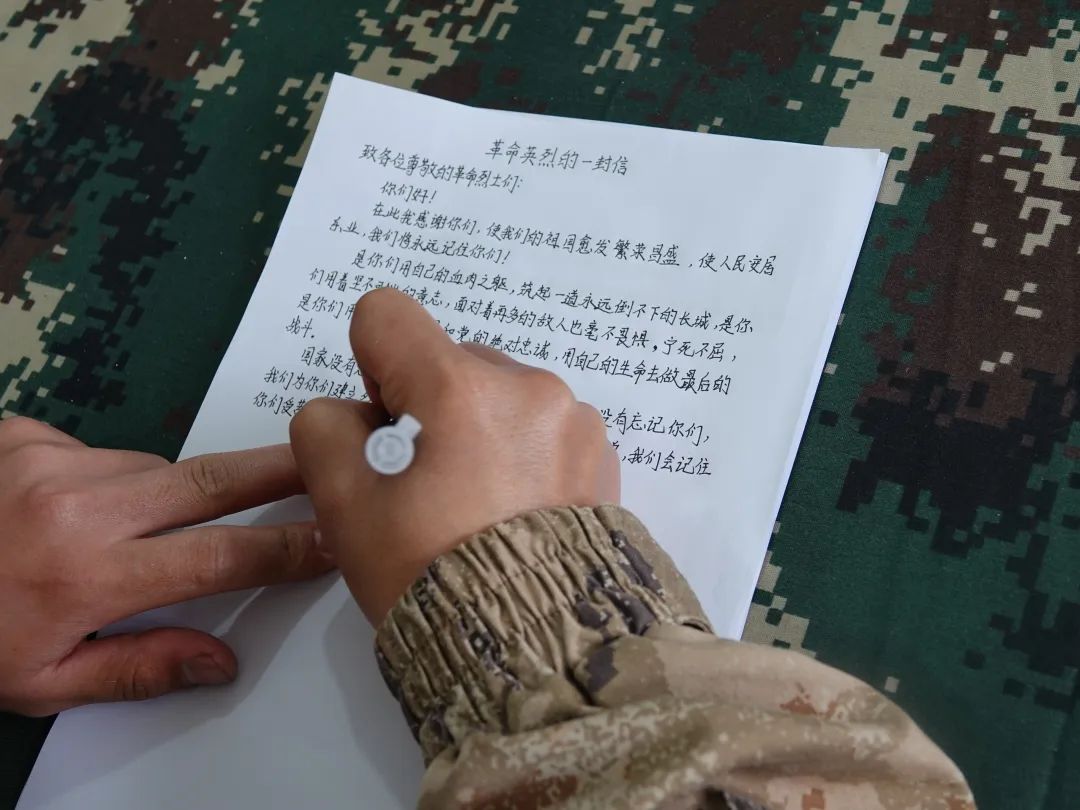 革命英烈的一封信
致各位尊敬的革命烈士们:
你们好!
在此我感谢你们,使我们的祖国愈发繁荣昌盛,使人民安居
东业,我们将永远记住你们!
是你们用自己的血肉之躯,筑起一道永远倒不下的长城,是你
们用着坚不 的意志,面对着再多的敌人也毫不畏惧,宁死不屈,
是你们用 和党的绝对忠诚,用自己的生命去做最后的
战斗.
国家没有 没有忘记你们,
我们为你们建立 ,我们会记住
你们受